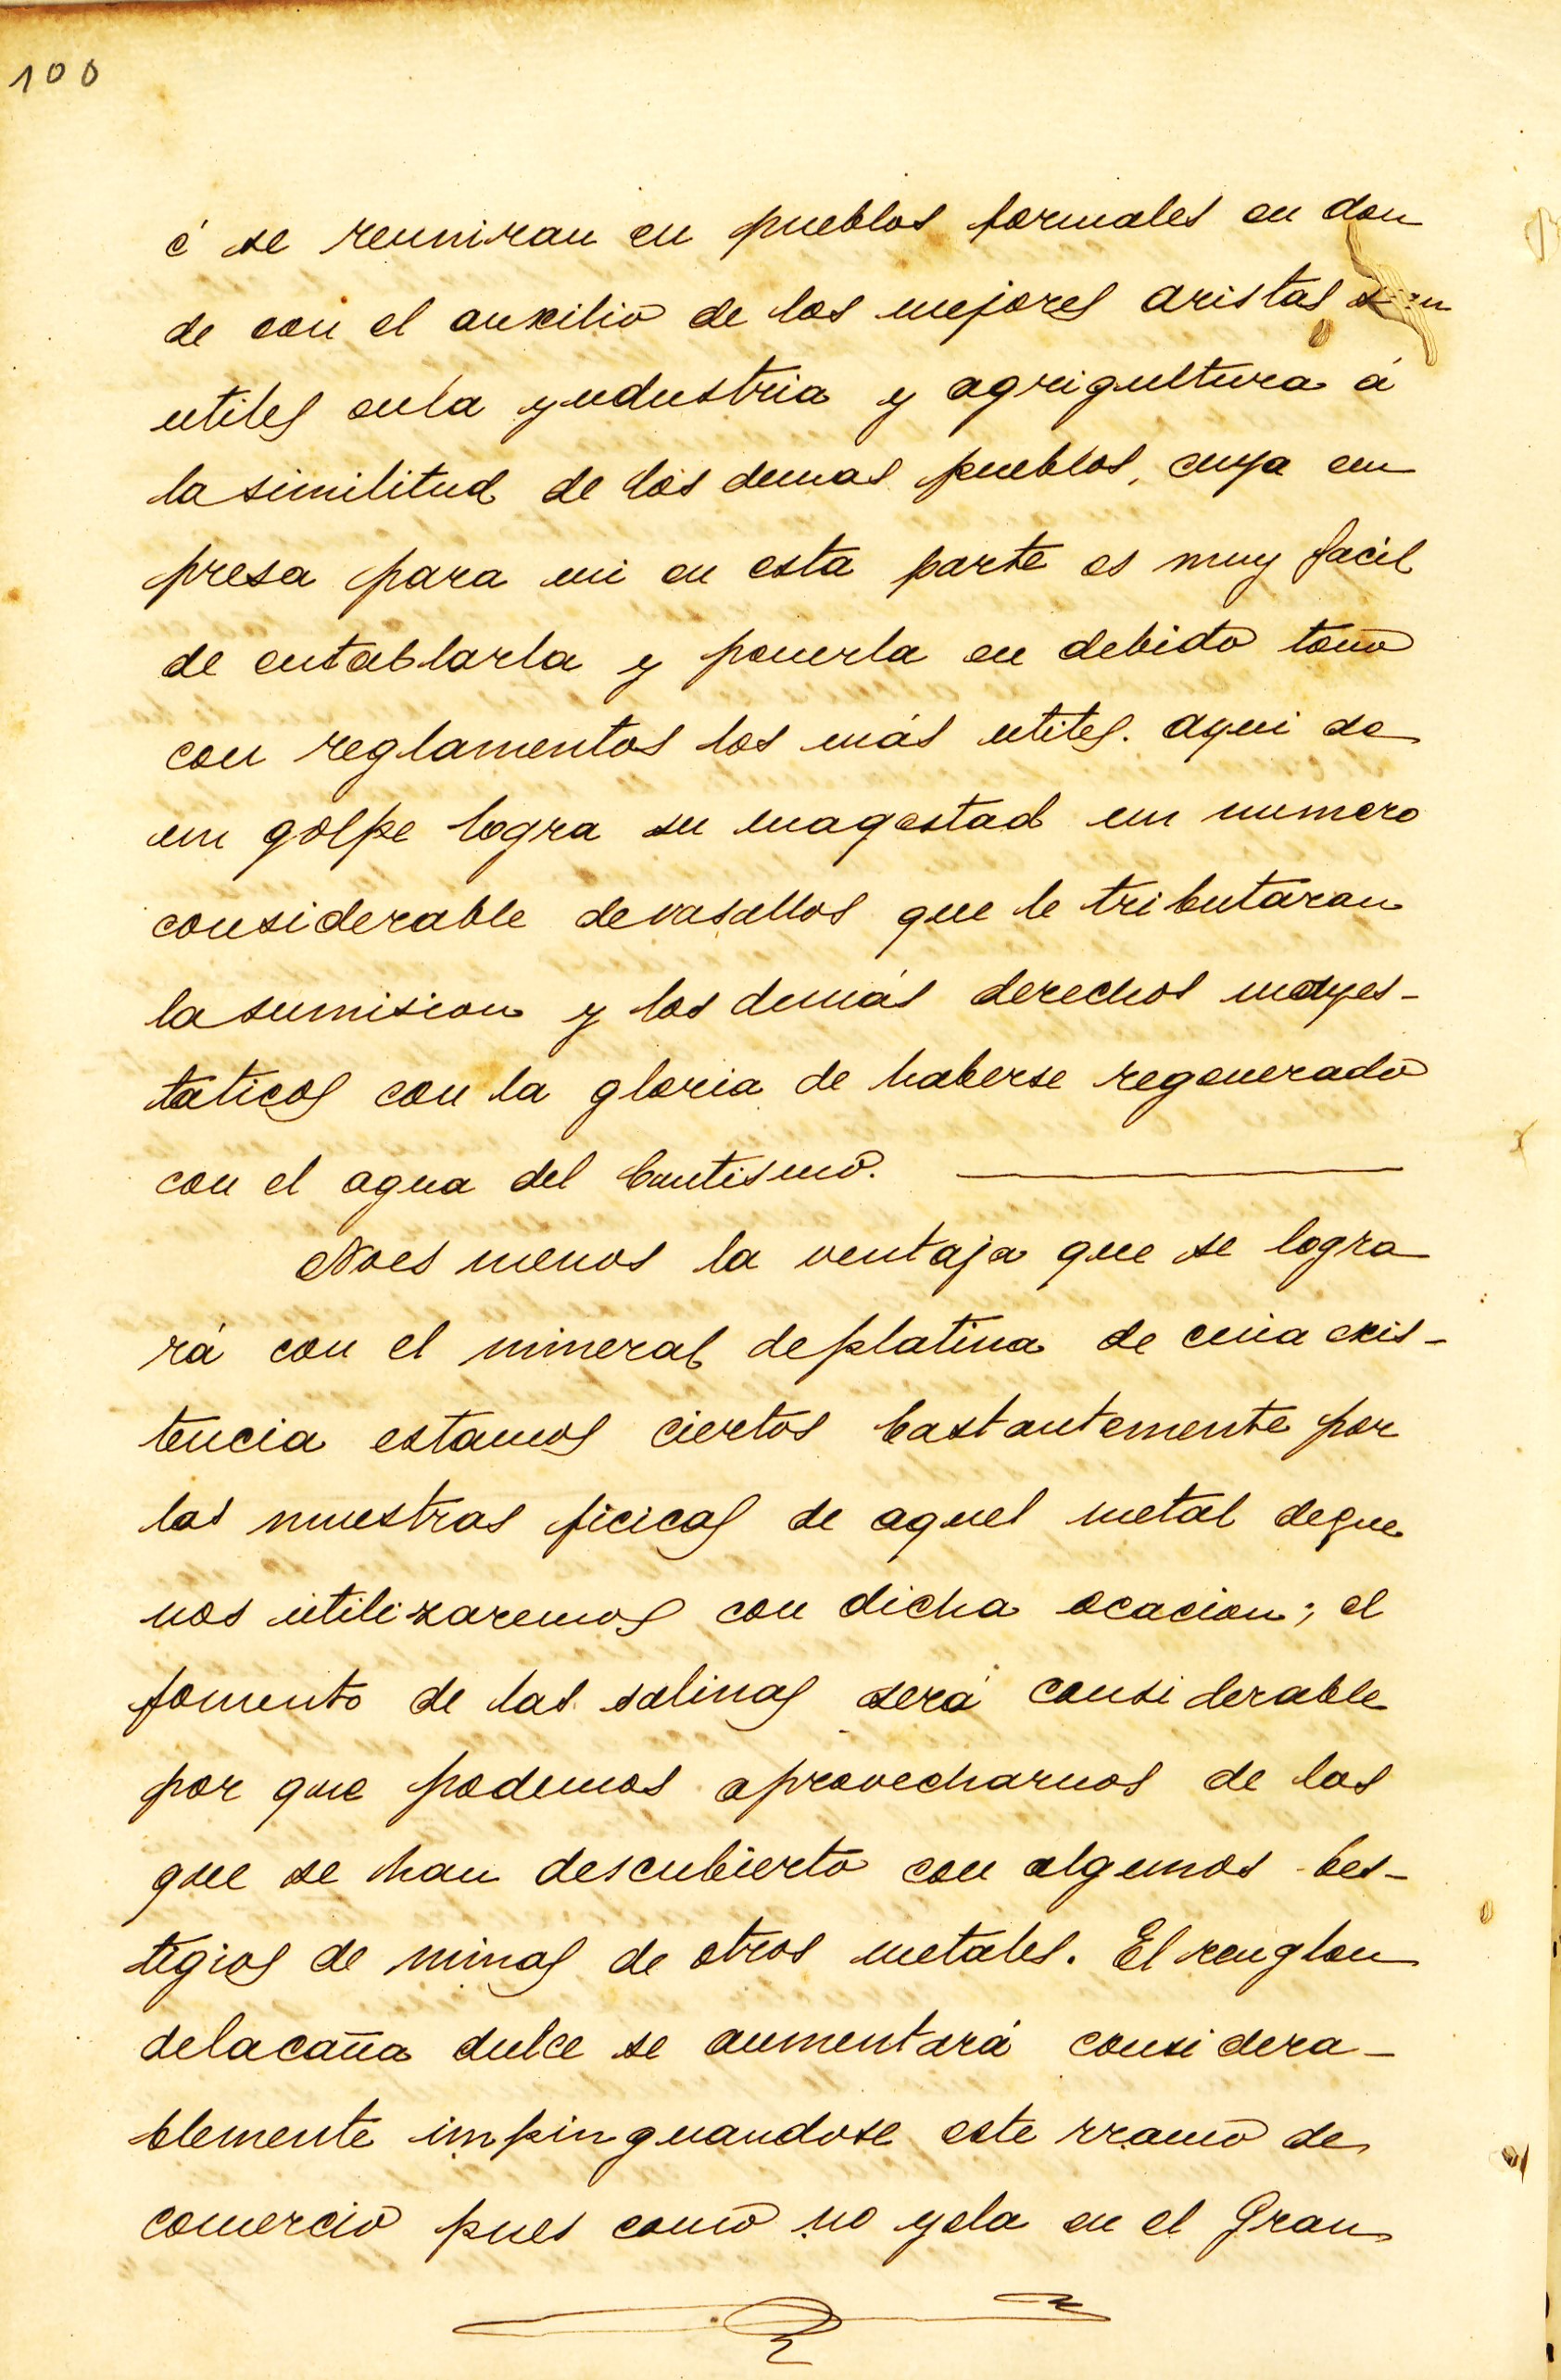 100
é se reuniran en pueblos formales en don
de con el auxilio de los mejores aristas
utiles enla yndustria y agrigultura á
la similitud de los demas pueblos, cuya em
presa para mi en esta parte es muy facil
de entablarla y ponerla en debido tono
con reglamentos los más utiles. aqui de
un golpe logra su magestad un numero
considerable devasallos que le tributaran
la sumision y los demás derechos mayes-
taticos con la gloria de haberse regenerado
con el agua del bautismo.
Noes menos la ventaja que se logra
rá con el mineral deplatina de cuia exis-
tencia estamos ciertos bastantemente por
las muestras ficicas de aquel metal deque
nos utilizaremos con dicha ocacion; el
fomento de las salinas será considerable
por que podemos aprovecharnos de las
que se han descubierto con algunos bes-
tigios de minas de otros metales. El renglon
delacaña dulce se aumentará considera-
blemente impinguandose este rramo de
comercio pues como no yela en el Gran